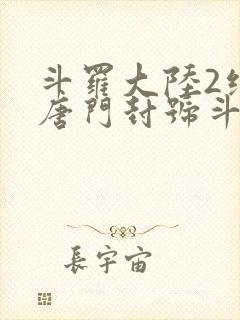 斗羅大陸2
唐門封號斗
長宇宙